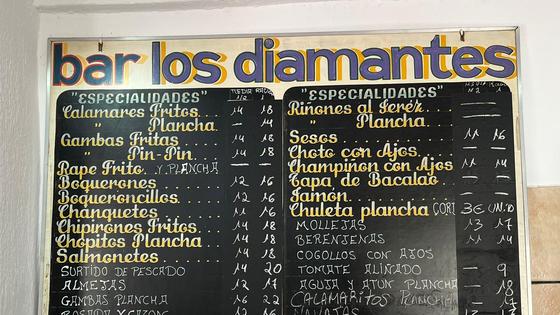 bar los diamantes
"ESPECIALIDADES" MEDIA 1/2 RACIÓN 1
Calamares Fritos 14 18
" Plancha 14
Gambas Fritas 14 18
" Pin-Pin 14 18
Rape Frito Y PLANCHA — —
Boquerones 12 16
Boqueroncillos 12 16
Chanquetes 11 16
Chipirones Fritos 14 18
Chopitos Plancha 14 18
Salmonetes 14 18
SURTIDO DE PESCADO 14 20
ALMEJAS 12 17
GAMBAS PLANCHA 16 22
ROSADA Y CAZON
"ESPECIALIDADES"
Riñones al Jerez — —
" Plancha — —
Sesos 11 16
Choto con Ajos — —
Champiñon con Ajos 11 14
Tapa de Bacalao — —
Jamon — —
Chuleta plancha CORD 3€ UNID
MOLLEJAS 13 17
BERENJENAS 11 14
COGOLLOS CON AJOS
TOMATE ALIÑADO — 9
AGUJA Y ATUN PLANCHA 18
CALAMARITOS PLANCHA 17
NAVAJAS